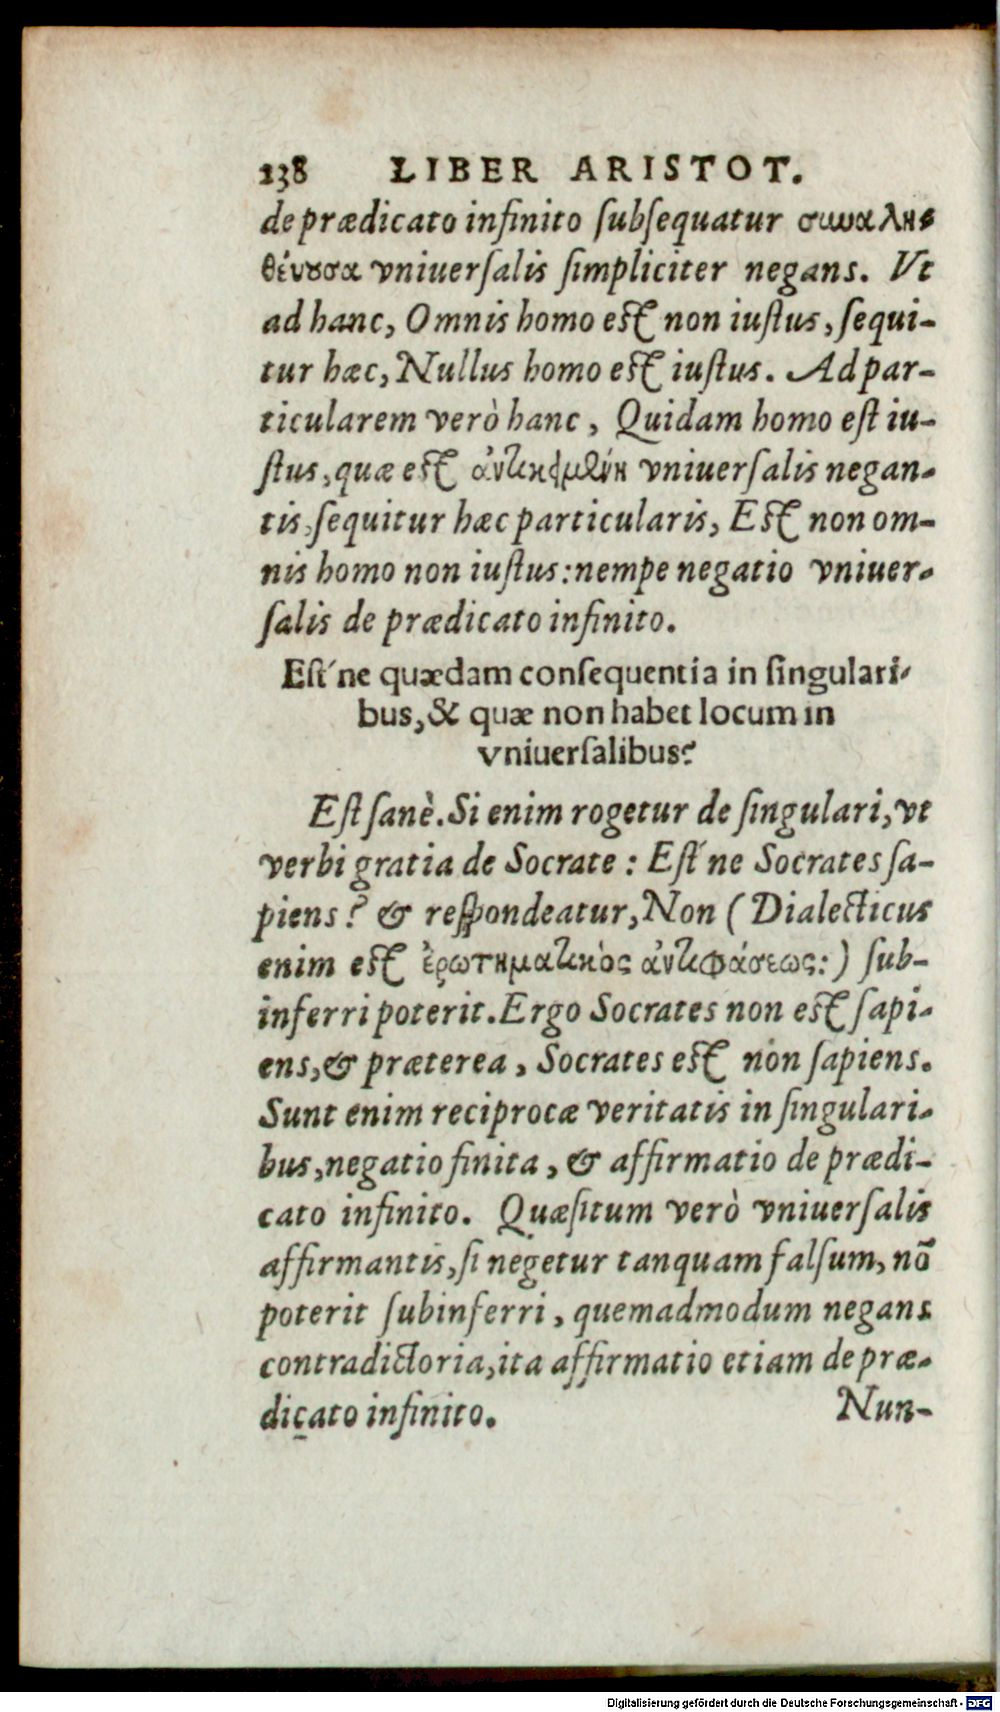 138 LIBER ARISTOT.
de prædicato infinito ſubſequatur συναλη-
θέυουσα vniuerſalis ſimpliciter negans. Vt
ad hanc, Omnis homo eſt non iuſtus, ſequi-
tur hæc, Nullus homo eſt iuſtus. Ad par-
ticularem verò hanc, Quidam homo eſt iu-
ſtus, quæ eſt ἀντικειμένη vniuerſalis negan-
tis, ſequitur hæc particularis, Eſt non om-
nis homo non iuſtus: nempe negatio vniuer-
ſalis de prædicato infinito.
Eſt´ne quædam conſequentia in ſingulari-
bus, & quæ non habet locum in
vniuerſalibus?
Eſt ſanè. Si enim rogetur de ſingulari, vt
verbi gratia de Socrate: Eſt´ne Socrates ſa-
piens? & reſpondeatur, Non (Dialecticus
enim eſt ἐρωτηματικὸς ἀντιφάσεως:) ſub-
inferri poterit. Ergo Socrates non eſt ſapi-
ens, & præterea, Socrates eſt non ſapiens.
Sunt enim reciprocæ veritatis in ſingulari-
bus, negatio finita, & affirmatio de prædi-
cato infinito. Quæſitum verò vniuerſalis
affirmantis, ſi negetur tanquam falſum, nō
poterit ſubinferri, quemadmodum negans
contradictoria, ita affirmatio etiam de præ-
dicato infinito. Nun-
Digitalisierung gefördert durch die Deutsche Forschungsgemeinschaft - DFG